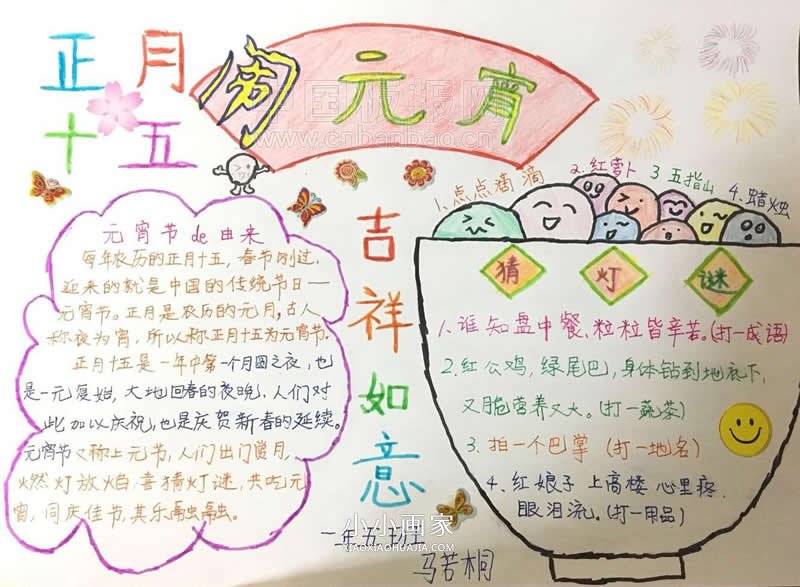 正月
十五
闹元宵
中国板报网
www.cnbanbao.cn
元宵节de由来
每年农历的正月十五,春节刚过,
迎来的就是中国的传统节日—
元宵节。正月是农历的元月,古人
称夜为宵,所以称正月十五为元宵节.
正月十五是一年中第一个月圆之夜,也
是一元复始,大地回春的夜晚,人们对
此加以庆祝,也是庆贺新春的延续。
元宵节又称上元节,人们出门赏月,
燃灯放焰,喜猜灯谜,共吃元
宵,同庆佳节,其乐融融。
吉祥如意
1、点点滴滴
2.红萝卜
3 五指山
4、蜡烛
猜灯谜
1、谁知盘中餐、粒粒皆辛苦。(打一成语)
2.红公鸡,绿尾巴,身体钻到地底下,
又脆营养又大。(打一蔬菜)
3、拍一个巴掌 (打一地名)
4、红娘子 上高楼 心里疼,
眼泪流。(打一用品)
小小画家
XIAOXIAOHUAJIA.COM
一年五班
马若桐